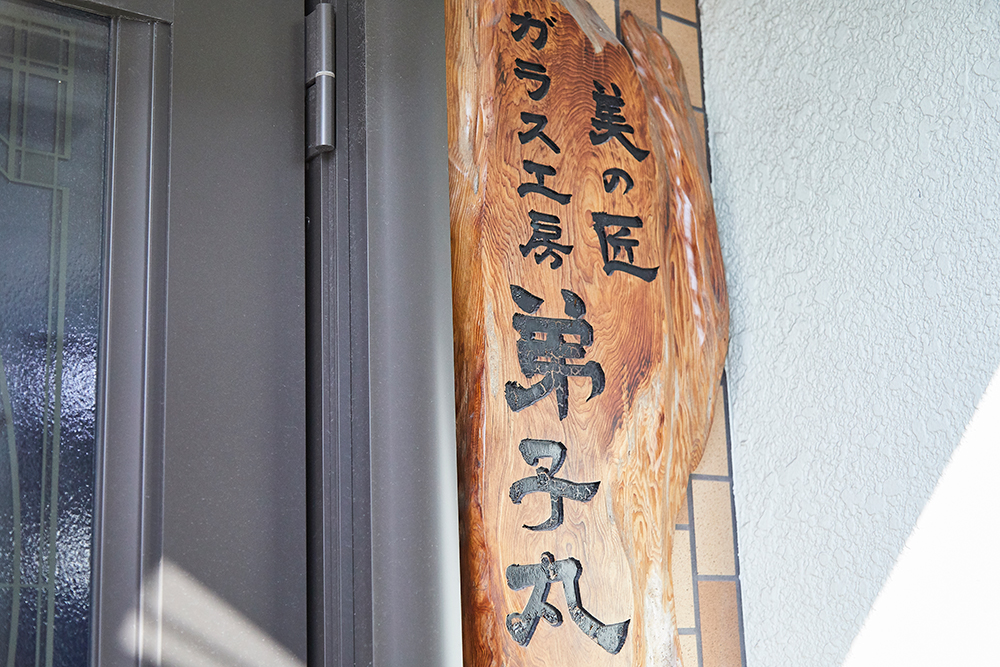 美の匠
ガラス工房
弟子丸